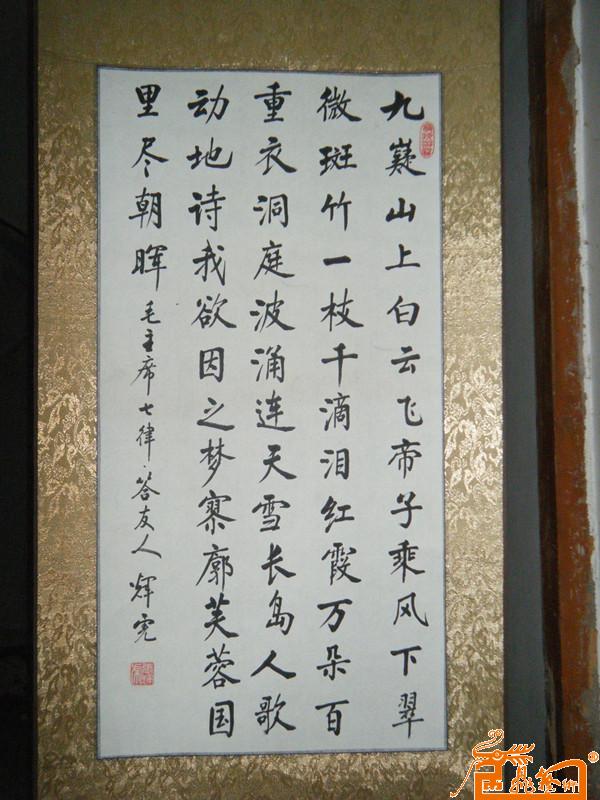 九嶷山上白云飞帝子乘风下翠
微斑竹一枝千滴泪红霞万朵百
重衣洞庭波涌连天雪长岛人歌
动地诗我欲因之梦寥廓芙蓉国
里尽朝晖 毛主席七律·答友人 辉完